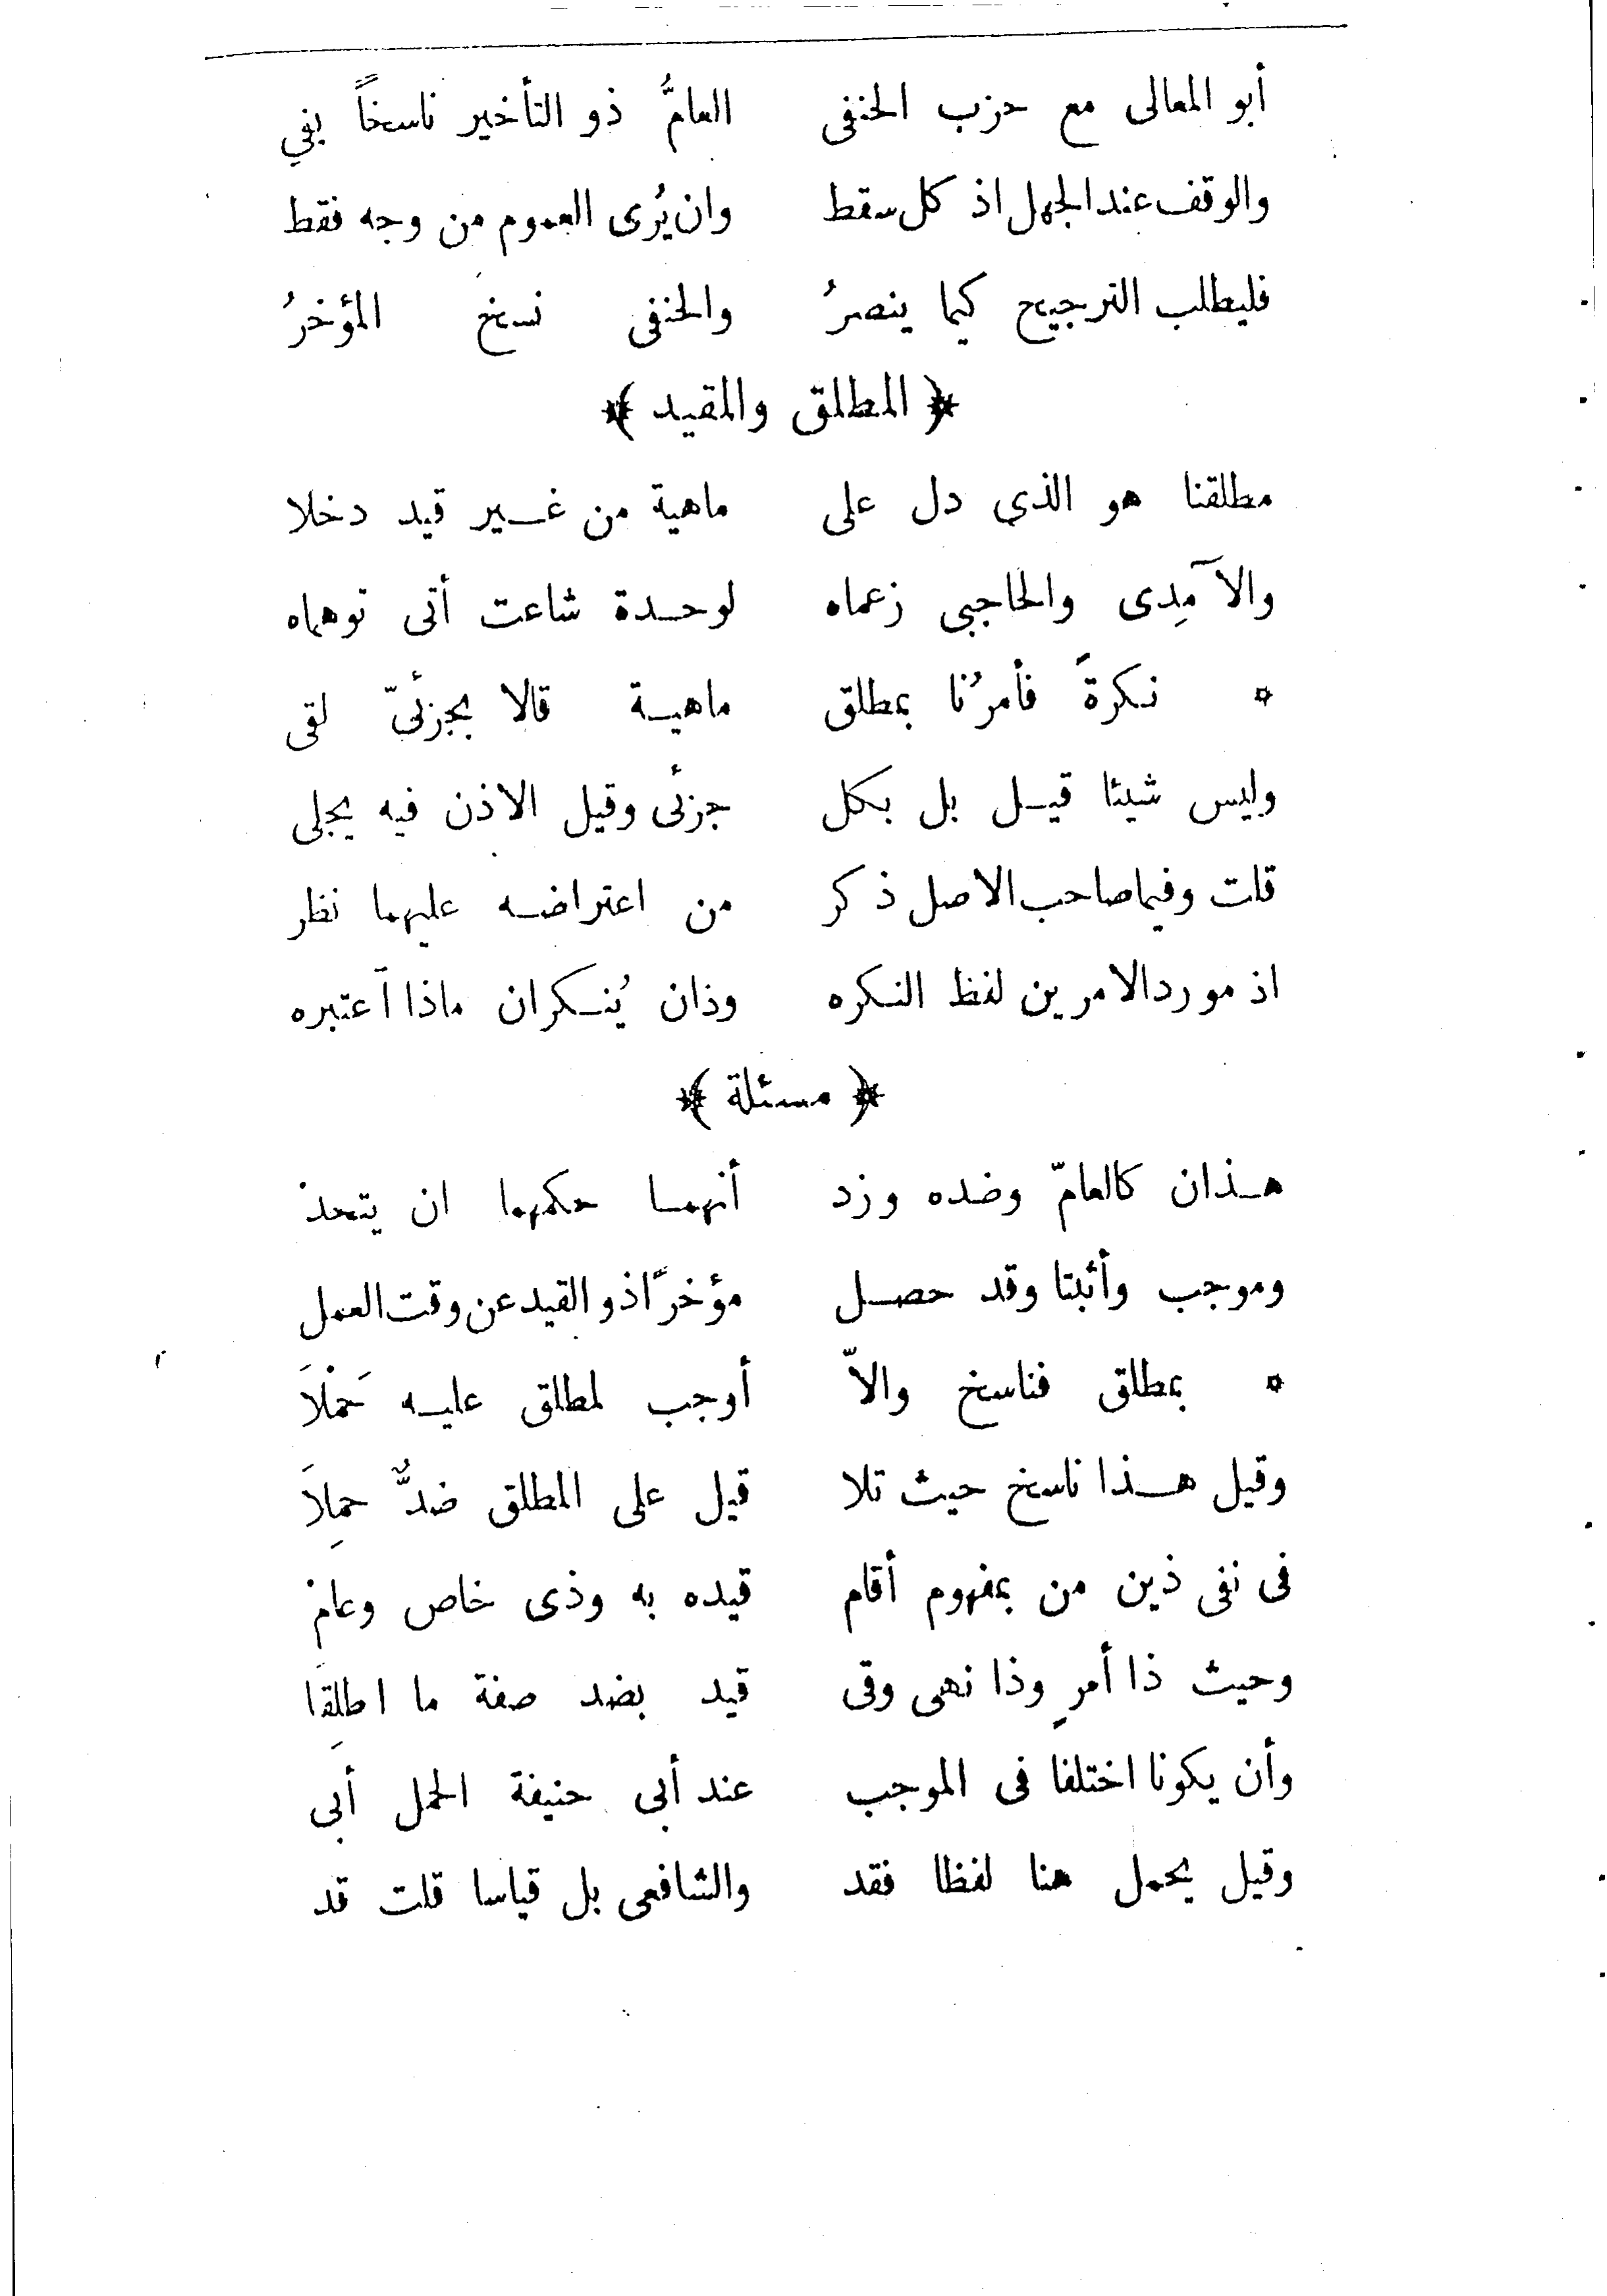 أبو المعالى مع حزب الحنفى العامُّ ذو التأخير ناسخاً يفي
والوقف عند الجهل اذ كل سقط وان يُرى العموم من وجه فقط
فليطلب الترجيح كيما ينصرُ والحنفى نسخ المؤخرُ
﴿ المطلق والمقيد ﴾
مطلقنا هو الذي دل على ماهية من غير قيد دخلا
والآمِدى والحاجبى زعماه لوحدة شاعت أتى توهماه
* نكرةً فأمرُنا بمطلق ماهية قالا بجزئىّ لقى
وليس شيئا قيل بل بكل جزئى وقيل الاذن فيه يجلى
قلت وفيما صاحب الاصل ذكر من اعتراضه عليهما نظر
اذ مورد الامرين لفظ النكره وذان يُنكران ماذا اَعتبره
﴿ مسئلة ﴾
هذان كالعامّ وضده وزد أنهما حكمهما ان يتحدْ
وموجب وأثبتا وقد حصل مؤخرًا ذو القيد عن وقت العمل
* بمطلق فناسخ والاّ أوجب لمطلق عليه حَمْلاَ
وقيل هذا ناسخ حيث تلا قيل على المطلق ضدٌّ حمِلاَ
فى نفى ذين من بمفهوم أقام قيده به وذى خاص وعامْ
وحيث ذا أمرٍ وذا نهى وقى قيد بضد صفة ما اطلِقَا
وأن يكونا اختلفا فى الموجب عند أبى حنيفة الحمل أبى
وقيل يحمل هنا لفظا فقد والشافعى بل قياسا قلت قد